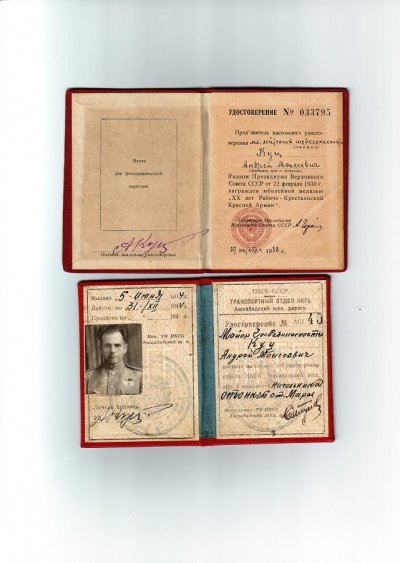 Место
для фотографической
карточки
А.Куц
Подпись владельца удостоверения
УДОСТОВЕРЕНИЕ № 033795
Пред'явитель настоящего удосто-
верения
Куц
Андрей Моисеевич
Указом Президиума Верховного
Совета СССР от 22 февраля 1938 г.
награжден юбилейной медалью
„ХХ лет Рабоче-Крестьянской
Красной Армии".
Секретарь Президиума
Верховного Совета СССР
1938 г.
Выдано 5 июня 1944 г.
Действ. по 31/XII 1944 г.
Продлено по 194 г.
Нач. ТО НКГБ
Ашхабадской ж. д.
Личная подпись
НКГБ СССР
ТРАНСПОРТНЫЙ ОТДЕЛ НКГБ
Ашхабадской жел. дороги
Удостоверение № 40
Майор Госбезопасности
Куц
Андрей Моисеевич
состоит на службе в транспортном
отделе НКГБ Ашхабадской жел.
начальника
ст. Мары
Начальник ТО НКГБ
Ашхабадской жел.